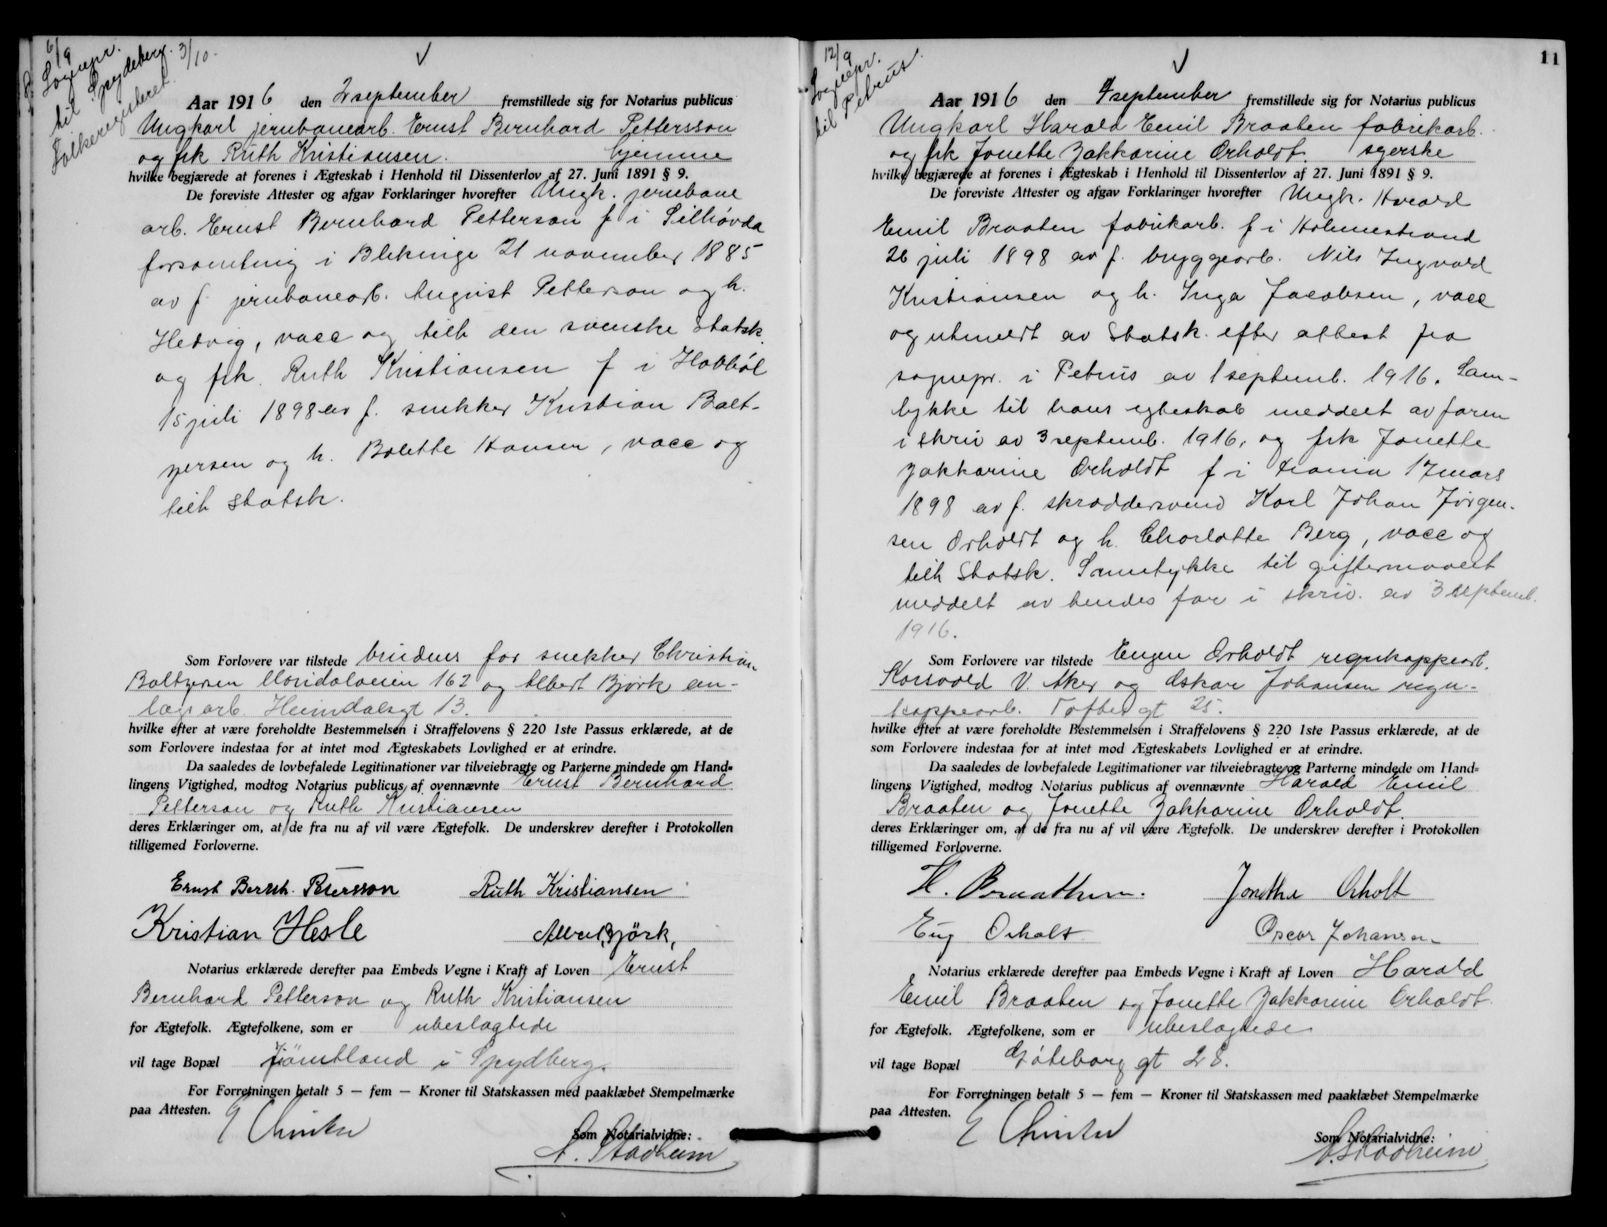 6/9
Sognepr.
til Spydeberg.
Folkeregisteret 3/10.
Aar 1916 den 2 september fremstillede sig for Notarius publicus
Ungkarl jernbanearb. Ernst Bernhard Pettersson
og frk Ruth Kristiansen. hjemme
hvilke begjærede at forenes i Ægteskab i Henhold til Dissenterlov af 27. Juni 1891 § 9.
De foreviste Attester og afgav Forklaringer hvorefter Ungk. jernbane
arb. Ernst Bernhard Petterson f i Silhövda
forsamling i Blekinge 21 november 1885
av f. jernbanearb. August Petterson og h.
Hedvig, vacc og tilh den svenske statsk.
og frk. Ruth Kristiansen f i Hobböl
15 juli 1898 av f. snekker Kristian Balt-
zersen og h. Bolette Hansen, vacc og
tilh statsk.
Som Forlovere var tilstede brudens far snekker Christian
Baltzersen Maridalsveien 162 og Albert Björk an-
lægsarb. Heimdalsgt 13.
hvilke efter at være foreholdte Bestemmelsen i Straffelovens § 220 1ste Passus erklærede, at de
som Forlovere indestaa for at intet mod Ægteskabets Lovlighed er at erindre.
Da saaledes de lovbefalede Legitimationer var tilveiebragte og Parterne mindede om Hand-
lingens Vigtighed, modtog Notarius publicus af ovennævnte Ernst Bernhard
Petterson og Ruth Kristiansen
deres Erklæringer om, at de fra nu af vil være Ægtefolk. De underskrev derefter i Protokollen
tilligemed Forloverne.
Ernst Bernh. Pettersson Ruth Kristiansen
Kristian Hesle Albert Björk,
Notarius erklærede derefter paa Embeds Vegne i Kraft af Loven Ernst
Bernhard Petterson og Ruth Kristiansen
for Ægtefolk. Ægtefolkene, som er ubeslægtede
vil tage Bopæl Jömtland i Spydberg.
For Forretningen betalt 5 — fem — Kroner til Statskassen med paaklæbet Stempelmærke
paa Attesten.
Som Notarialvidne:
A. Stadheim
11
12/9
Sognepr.
til Petrus.
Aar 1916 den 4 september fremstillede sig for Notarius publicus
Ungkarl Harald Emil Braaten fabrikarb.
og frk Jonette Zakkarine Orholdt. syerske
hvilke begjærede at forenes i Ægteskab i Henhold til Dissenterlov af 27. Juni 1891 § 9.
De foreviste Attester og afgav Forklaringer hvorefter Ungk. Harald
Emil Braaten fabrikarb. f i Holmestrand
26 juli 1898 av f. bryggearb. Nils Ingvald
Kristiansen og h. Inga Jacobsen, vacc
og utmeldt av Statsk. efter attest fra
sognepr. i Petrus av 1 septemb. 1916. Sam-
tykke til hans egteskab meddelt av faren
i skriv av 3 septemb. 1916, og frk Jonette
Zakkarine Orholdt f i Xania 17 mars
1898 av f. skræddersvend Karl Johan Jörgen-
sen Orholdt og h. Charlotte Berg, vacc og
tilh Statsk. Samtykke til giftermaalet
meddelt av hendes far i skriv. av 3 septemb.
1916.
Som Forlovere var tilstede Eugen Orholdt regnkappearb.
Korsvold V. Aker og Oskar Johansen regn-
kappearb. Toftesgt 25.
hvilke efter at være foreholdte Bestemmelsen i Straffelovens § 220 1ste Passus erklærede, at de
som Forlovere indestaa for at intet mod Ægteskabets Lovlighed er at erindre.
Da saaledes de lovbefalede Legitimationer var tilveiebragte og Parterne mindede om Hand-
lingens Vigtighed, modtog Notarius publicus af ovennævnte Harald Emil
Braaten og Jonette Zakkarine Orholdt.
deres Erklæringer om, at de fra nu af vil være Ægtefolk. De underskrev derefter i Protokollen
tilligemed Forloverne.
H. Braathen. Jonetha Orholt
Eug Orholt Oscar Johansen
Notarius erklærede derefter paa Embeds Vegne i Kraft af Loven Harald
Emil Braaten og Jonette Zakkarine Orholdt.
for Ægtefolk. Ægtefolkene, som er ubeslægtede
vil tage Bopæl Göteborg gt 28.
For Forretningen betalt 5 — fem — Kroner til Statskassen med paaklæbet Stempelmærke
paa Attesten.
Som Notarialvidne:
A. Stadheim